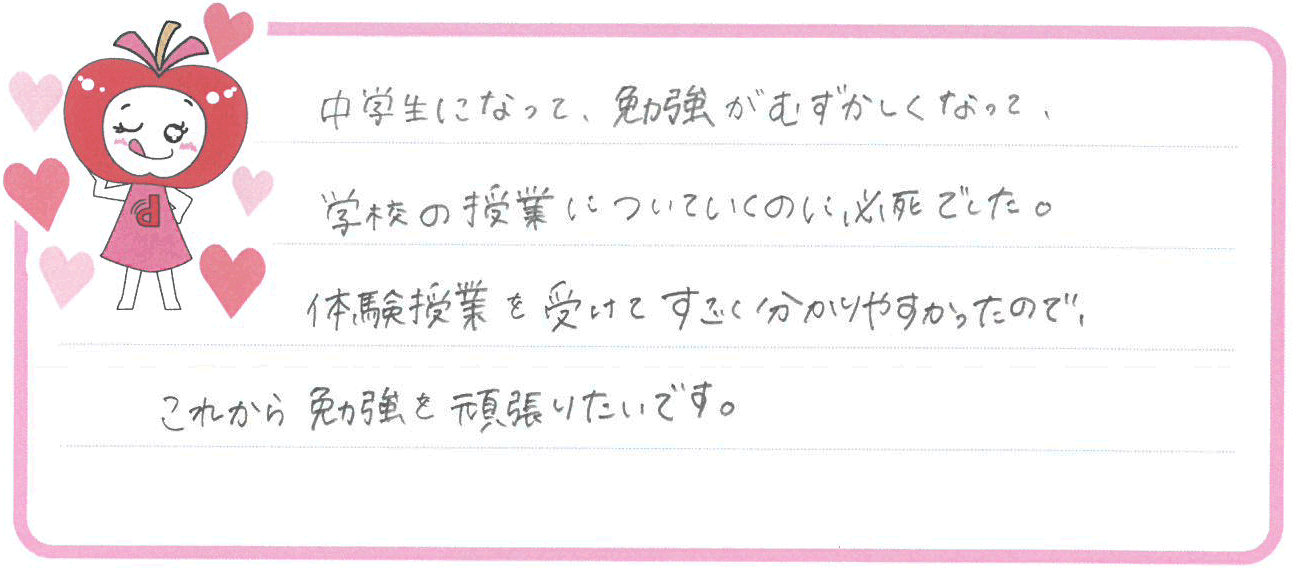 中学生になって、勉強がむずかしくなって、
学校の授業についていくのに必死でした。
体験授業を受けてすごく分かりやすかったので、
これから勉強を頑張りたいです。